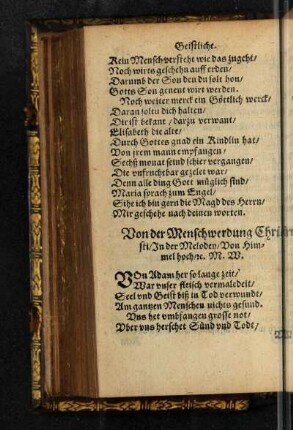 Geistliche.
Kein Mensch versteht wie das zugeht/
Noch wirts geschehn auff erden/
Darumb der Son den du solt hon/
Gotts Son genent wirt werden.
Noch weiter merck ein Göttlich werck/
Daran soltu dich halten/
Die ist bekant/ darzu verwant/
Elisabeth die alte/
Durch Gottes gnad ein Kindlin hat/
Von jrem mann empfangen/
Sechß monat seind schier vergangen/
Die vnfruchtbar gezelet war/
Denn alle ding Gott müglich sind/
Maria sprach zum Engel/
Sihe ich bin gern die Magd des Herrn/
Mir geschehe nach deinen worten.
Von der Menschwerdung Chri
sti/ In der Melodey/ Von Him
mel hoch/ ꝛc. M. W.
VOn Adam her so lange zeit/
War vnser fleisch vermaledeit/
Seel vnd Geist biß in Tod verwundt/
Am gantzen Menschen nichts gesund.
Vns het vmbfangen grosse not/
Vber vns herschet Sünd vnd Todt/